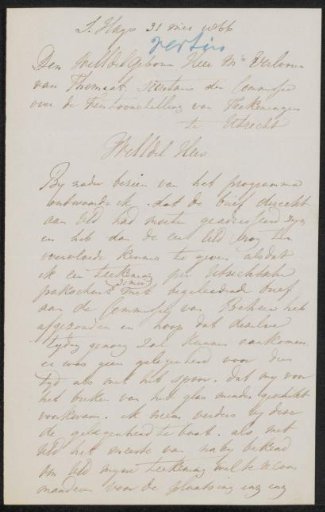 S. Hage 31 mei 1866
Den WelEdelgeboren Heer Mr
van Thomaat, Secretaris der Commissie
voor de Tentoonstelling van Teekeningen
te Utrecht
WelEdel Heer
By nader inzien van het programma
ontwaarde ik, dat de brief direct
aan UEd had moeten geadresseerd zyn
en heb dan de eer UEd nog ten
vervolge kennis te geven, als dat
ik een teekening per
met begeleidend brief
aan de Commissie van heb
afgezonden en hoop dat dezelve
tydig genoeg zal kunnen aankomen
er was geen gelegenheid voor dien
tyd als met het spoor, dat my voor
het breken van het glas minder geschikt
voorkwam. ik neem verders by deze
de gelegenheid te baat, als met
UEd het meeste van naby bekend
om UEd myne teekening wel te
voor de plaatsing